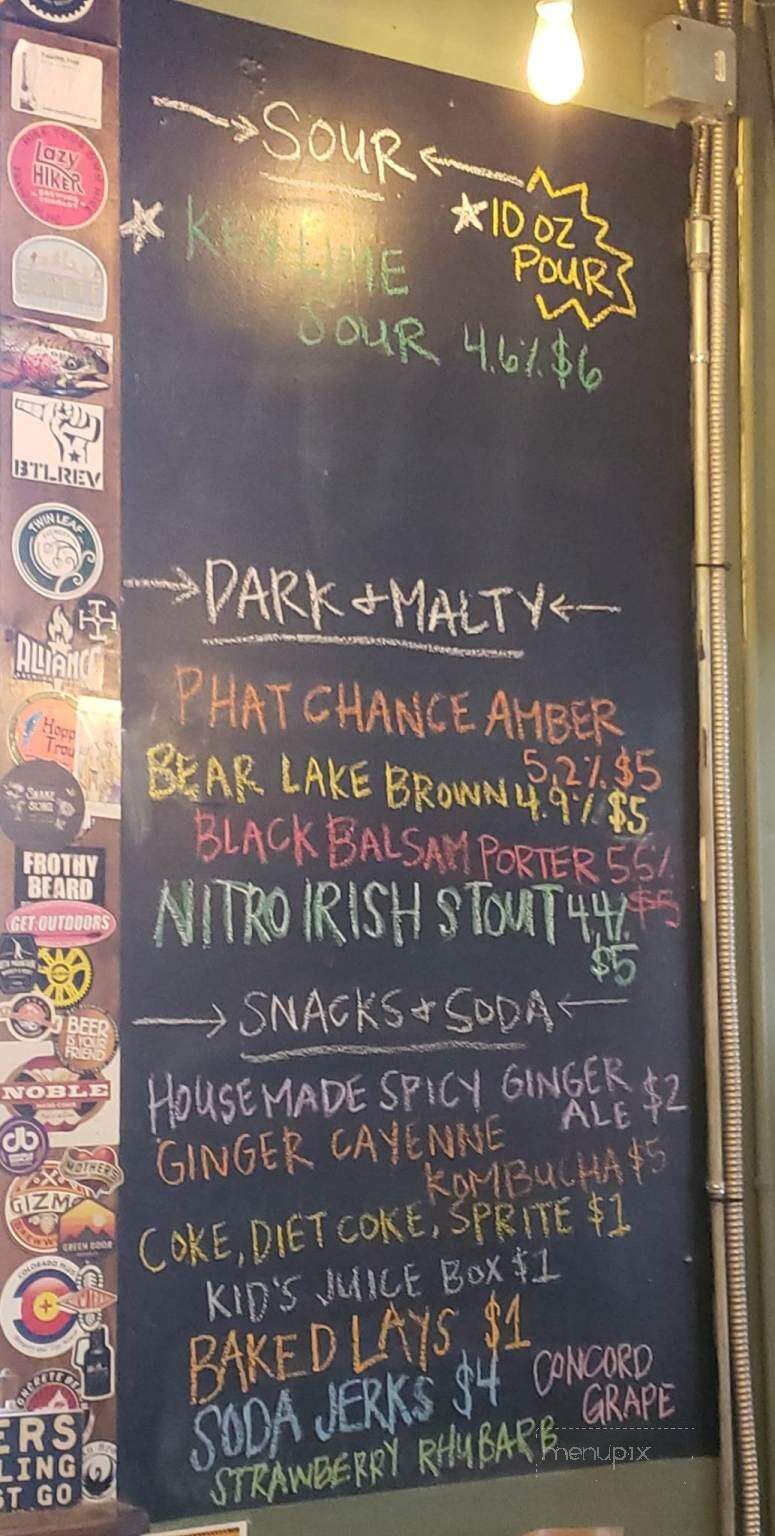 SOUR
KEY LIME
SOUR 4.6% $6
10 OZ
POUR
DARK & MALTY
PHAT CHANCE AMBER
5.2% $5
BEAR LAKE BROWN 4.9% $5
BLACK BALSAM PORTER 5.5%
$5
NITRO IRISH STOUT 4.4%
$5
SNACKS & SODA
HOUSEMADE SPICY GINGER
ALE $2
GINGER CAYENNE
KOMBUCHA $5
COKE, DIET COKE, SPRITE $1
KID'S JUICE BOX $1
BAKED LAYS $1
SODA JERKS $4
CONCORD
GRAPE
STRAWBERRY RHUBARB
menupix
Lazy
HIKER
BREWING
COMPANY
BTLREV
TWIN LEAF
ALLIANCE
Hopp
Trou
SNAKE
FROTHY
BEARD
GET OUTDOORS
BEER
IS YOUR
FRIEND
NOBLE
db
MOTHER'S
GIZMO
BREW
GREEN DOOR
COLORADO PLUS
CONCRETE BE
ERS
LING
ST GO